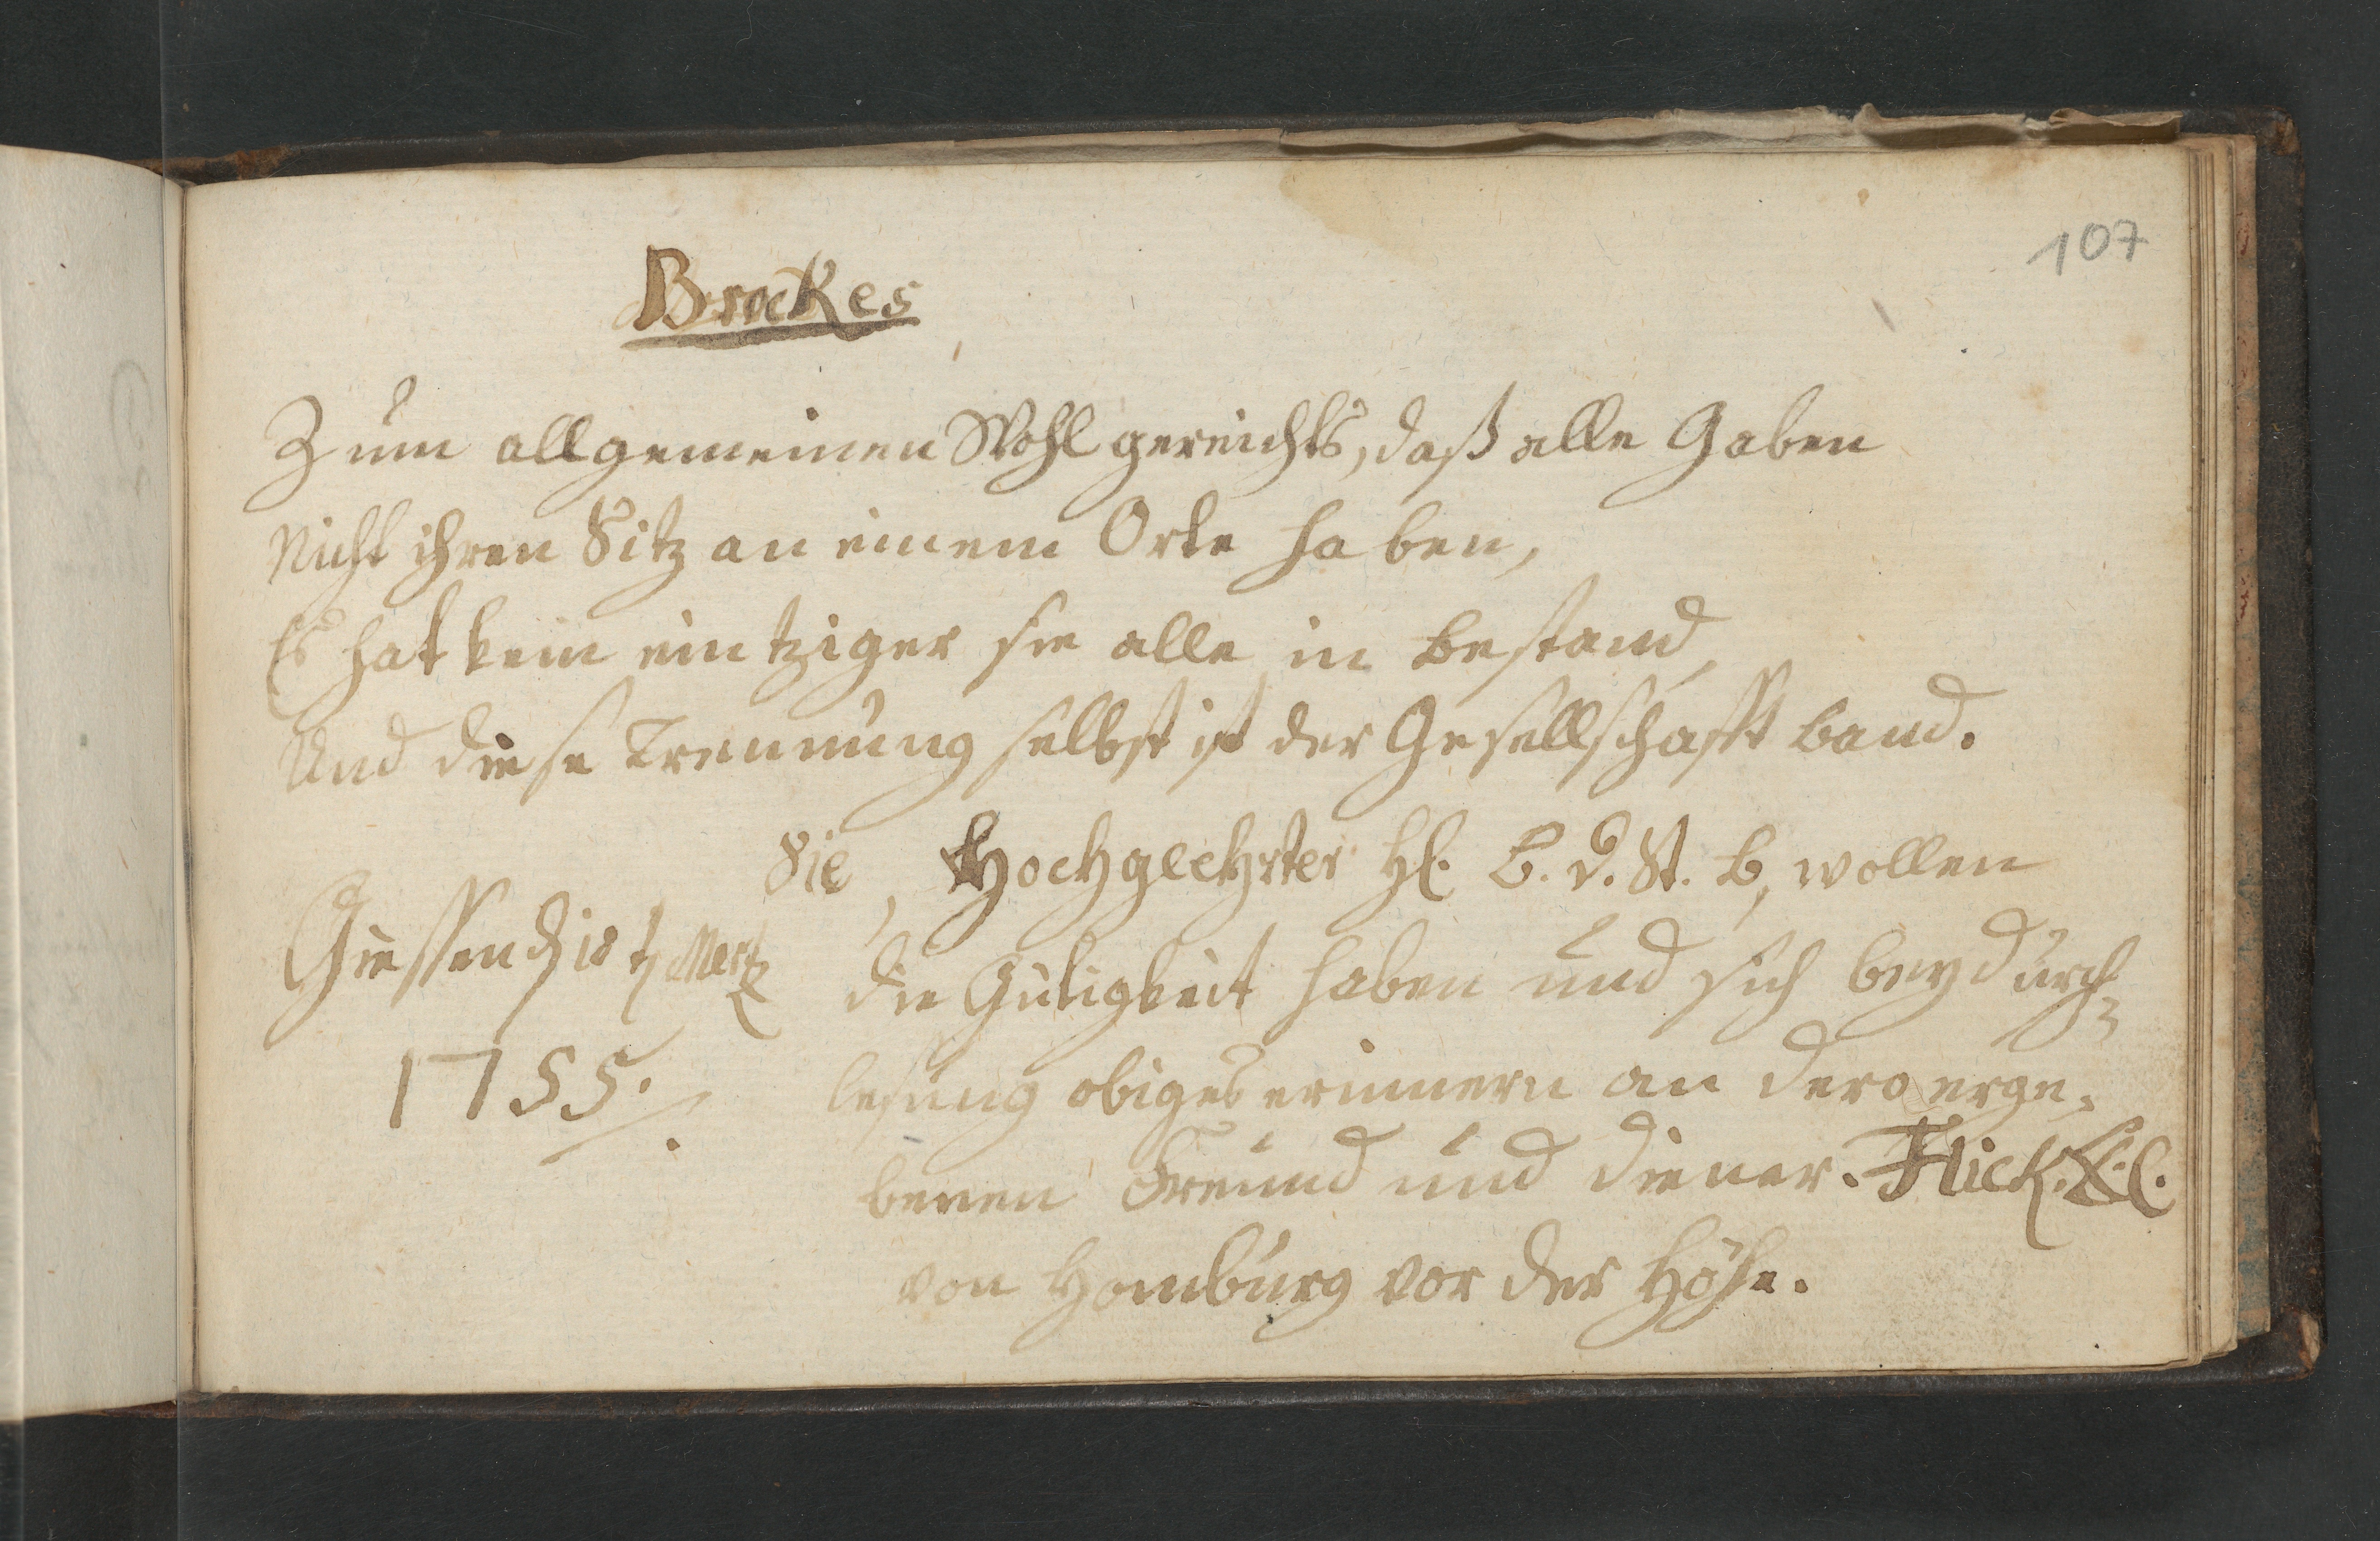 107
Brockes
Zum allgemeinen Wohl gereichts, daß alle Gaben
Nicht ihren Sitz an einem Orte haben,
Es hat kein eintziger sie alle in bestand,
Und diese Trennung selbst ist der Gesellschafft band.
Sie, Hochgeehrter H. B. d. St. B, wollen
Giessen d 18 t Mertz
die Gütigkeit haben und sich bey durch-
1755.
lesung obiges erinnern an dero erge-
benen Freund und diener. Flick.
von Homburg vor der Höhe.